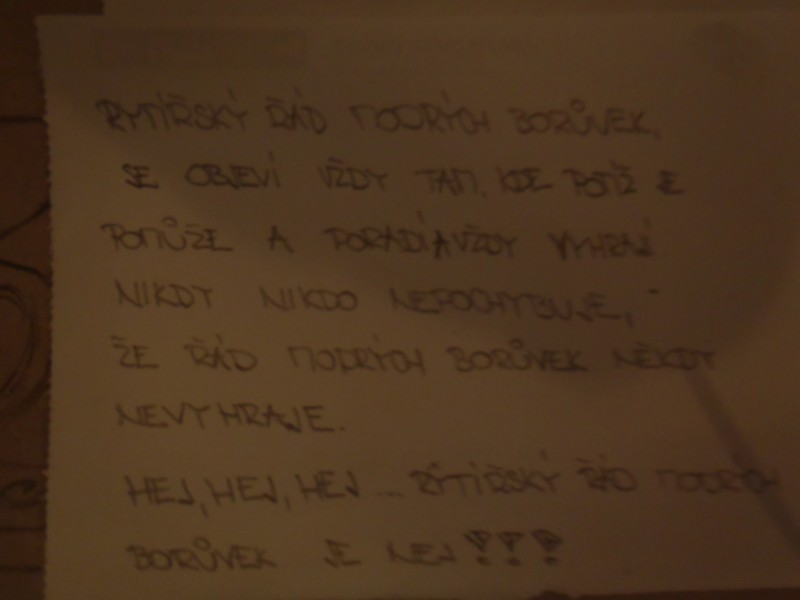 RYTÍŘSKÝ ŘÁD MODRÝCH BORŮVEK,
SE OBJEVÍ VŽDY TAM, KDE POTÍŽ JE
POMŮŽE A PORADÍ A VŽDY VYHRAJÍ
NIKDY NIKDO NEPOCHYBUJE,
ŽE ŘÁD MODRÝCH BORŮVEK NĚKDY
NEVYHRAJE.
HEJ, HEJ, HEJ... RYTÍŘSKÝ ŘÁD MODRÝCH
BORŮVEK JE NEJ!!!